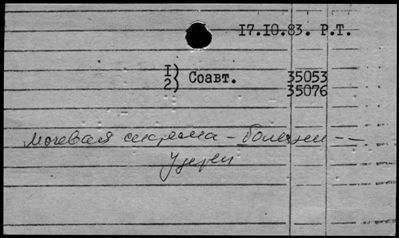 17.10.83. Р.Т.
1) Соавт. 35053
2) 35076
мочевая система - болезни --